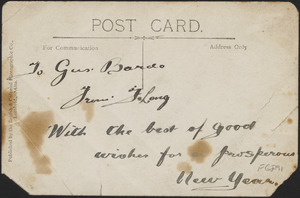 POST CARD.
For Communication
Address Only
To Gus. Bardo
From F. Long
With the best of good
wishes for prosperous
New Year.